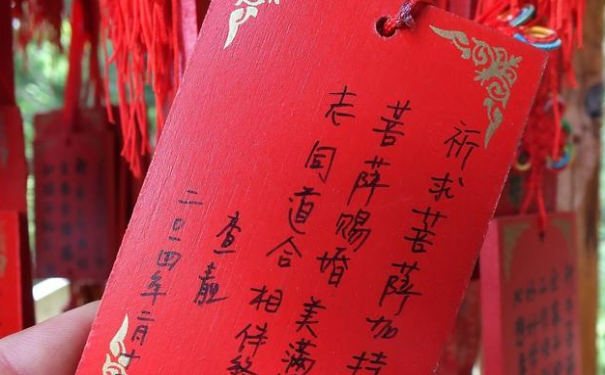 祈求菩萨加持
菩萨赐婚美满
志同道合相伴终
查
二〇一四年二月十